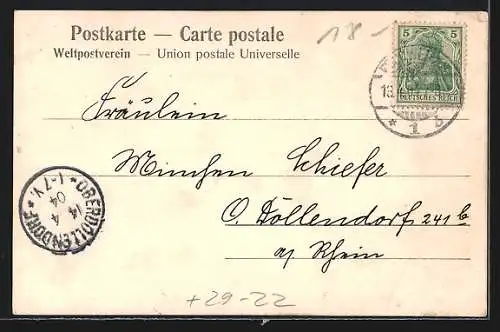 Postkarte — Carte postale
Weltpostverein — Union postale Universelle
18-
5 5
DEUTSCHES REICH
* 1 b
Fräulein
Minchen Schiefer
O. Döllendorf 241 b
a/ Rhein
OBERDOLLENDORF *
14 4
04
1-7 V.
+29-22